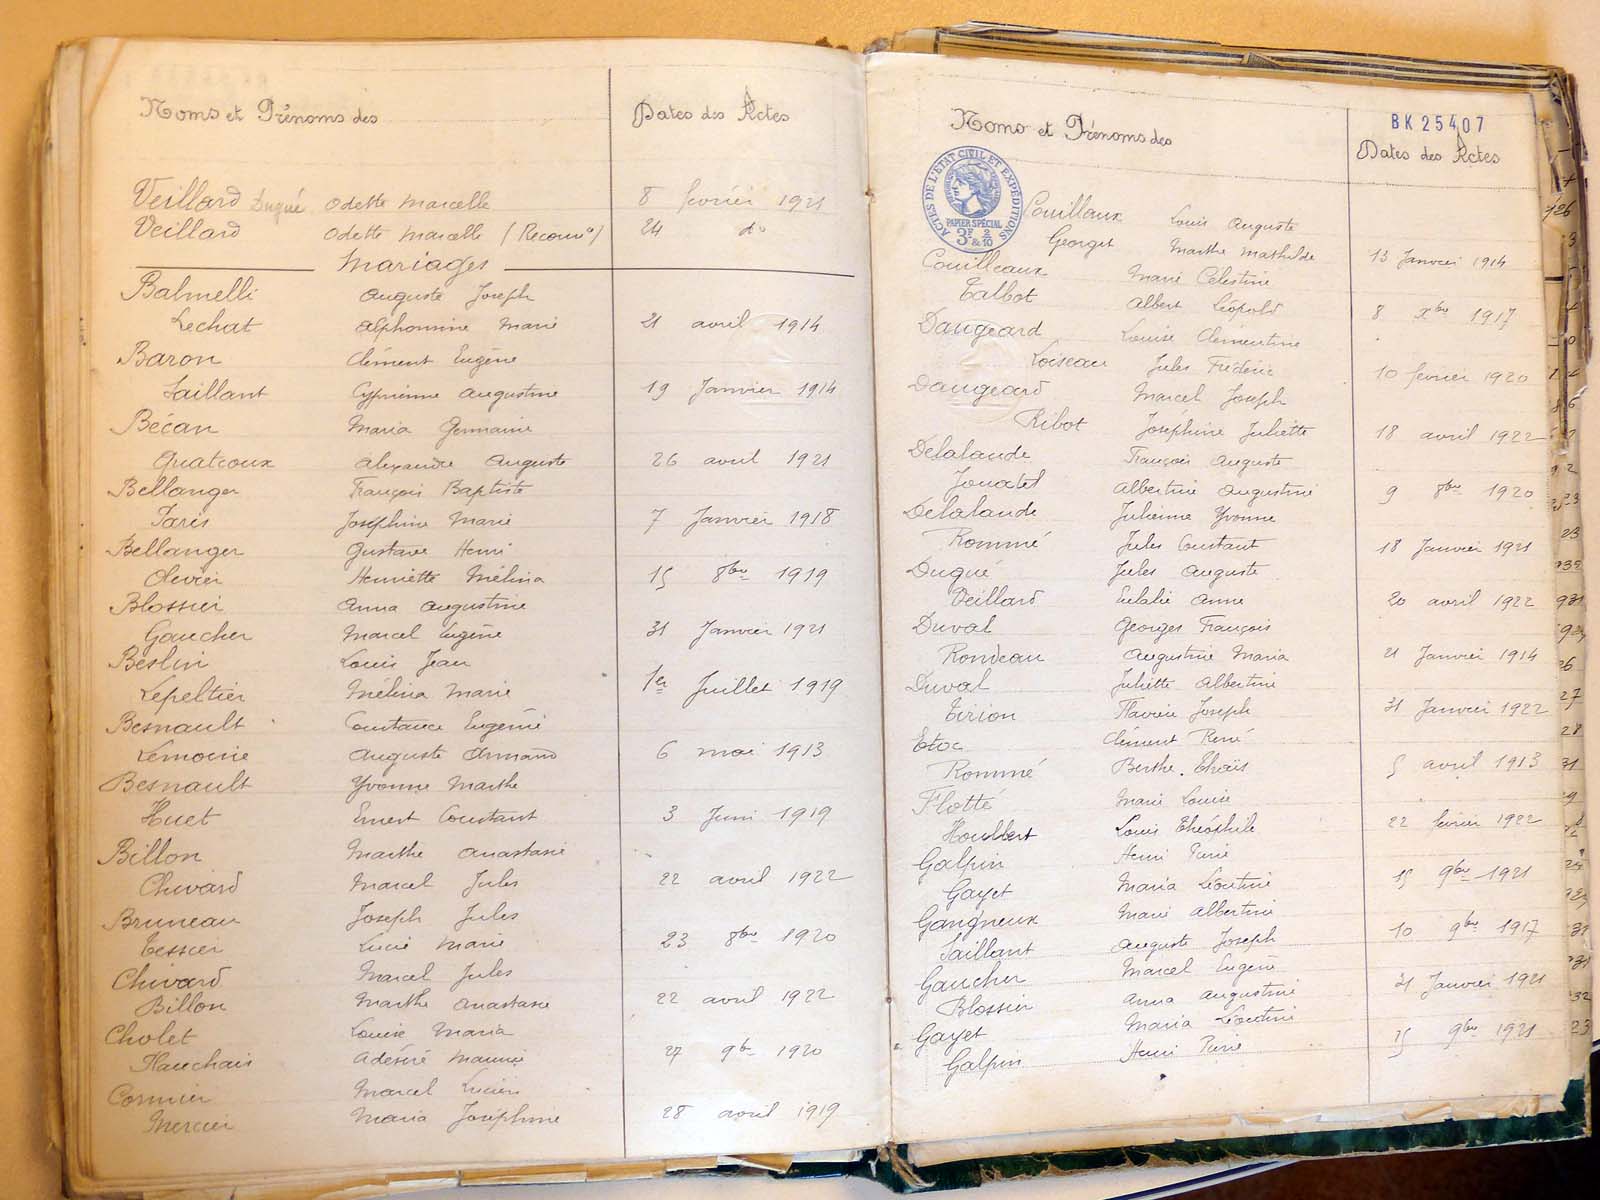 Noms et Prénoms des Dates des Actes
Veillard Duqué Odette Marcelle 8 fevrier 1921
Veillard Odette Marcelle (Recon ce) 24 do
Mariages
Balmelli Auguste Joseph
Lechat Alphonsine Marie 21 avril 1914
Baron Clément Eugène
Saillant Cyprienne Augustine 19 Janvier 1914
Bécan Maria Germaine
Quatroux Alexandre Auguste 26 avril 1921
Bellanger François Baptiste
Paris Joséphine Marie 7 Janvier 1918
Bellanger Gustave Henri
Olivier Henriette Mélina 15 8bre 1919
Blossier Anna Augustine
Gaucher Marcel Eugène 31 Janvier 1921
Beslin Louis Jean
Lepeltier Mélina Marie 1er Juillet 1919
Besnault Constance Eugénie
Lemoine Auguste Armand 6 mai 1913
Besnault Yvonne Marthe
Huet Ernest Constant 3 Juin 1919
Billon Marthe Anastasie
Chivard Marcel Jules 22 avril 1922
Bruneau Joseph Jules
Tessier Lucie Marie 23 8bre 1920
Chivard Marcel Jules
Billon Marthe Anastasie 22 avril 1922
Cholet Louise Maria
Hauchais Adésiré Maurice 27 9bre 1920
Cormier Marcel Lucien
Mercier Maria Joséphine 28 avril 1919
BK 25407
Noms et Prénoms des Dates des Actes
ACTES DE L'ÉTAT CIVIL ET EXPÉDITIONS
PAPIER SPÉCIAL
3F & 2/10
Couillaux Louis Auguste
Georget Marthe Mathilde 13 Janvier 1914
Couilleaux Marie Célestine
Talbot Albert Léopold 8 Xbre 1917
Daugeard Louise Clémentine
Loiseau Jules Frédéric 10 fevrier 1920
Daugeard Marcel Joseph
Ribot Joséphine Juliette 18 avril 1922
Delalande François Auguste
Jouatel Albertine Augustine 9 8bre 1920
Delalande Julienne Yvonne
Rommé Jules Constant 18 Janvier 1921
Duqué Jules Auguste
Veillard Eulalie Anne 20 avril 1922
Duval Georges François
Rondeau Augustine Maria 21 Janvier 1914
Duval Juliette Albertine
Tirion Flavien Joseph 31 Janvier 1922
Etoc Clément René
Rommé Berthe Thaïs 5 avril 1913
Flotté Marie Louise
Houlbert Louis Théophile 22 fevrier 1922
Galpin Henri Pierre
Gayet Maria Léontine 15 9bre 1921
Gangneux Marie Albertine
Saillant Auguste Joseph 10 9bre 1917
Gaucher Marcel Eugène
Blossier Anna Augustine 31 Janvier 1921
Gayet Maria Léontine
Galpin Henri Pierre 15 9bre 1921